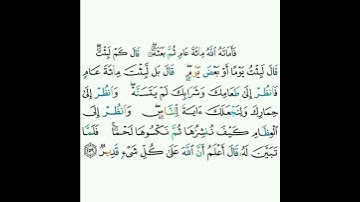 فَأَمَاتَهُ ٱللَّهُ مِا۟ئَةَ عَامٍ ثُمَّ بَعَثَهُۥ ۖ قَالَ كَمْ لَبِثْتَ ۖ
قَالَ لَبِثْتُ يَوْمًا أَوْ بَعْضَ يَوْمٍ ۖ قَالَ بَل لَّبِثْتَ مِا۟ئَةَ عَامٍ
فَٱنظُرْ إِلَىٰ طَعَامِكَ وَشَرَابِكَ لَمْ يَتَسَنَّهْ ۖ وَٱنظُرْ إِلَىٰ
حِمَارِكَ وَلِنَجْعَلَكَ ءَايَةً لِّلنَّاسِ ۖ وَٱنظُرْ إِلَى
ٱلْعِظَامِ كَيْفَ نُنشِزُهَا ثُمَّ نَكْسُوهَا لَحْمًا ۚ فَلَمَّا
تَبَيَّنَ لَهُۥ قَالَ أَعْلَمُ أَنَّ ٱللَّهَ عَلَىٰ كُلِّ شَىْءٍ قَدِيرٌ ٢٥٩